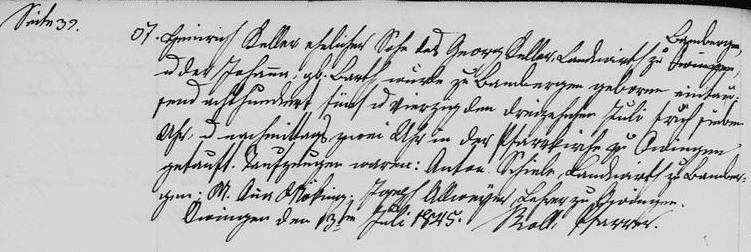 Seite 39.
07. Heinrich Keller ehelicher Sohn des Georg Keller, Landwirth zu Bambergen
u der Johanna, gb. Barth wurde zu Bambergen geboren eintau-
send achthundert fünf u vierzig den dreizehnten Juli früh sieben
Uhr, u nachmittags zwei Uhr in der Pfarrkirche zu Owingen
getauft. Taufzeugen waren: Anton Schiele, Landwirth zu Bamber-
gen; M. Anna ; Joseph , Lehrer zu Owingen.
Owingen den 13ten Juli 1845. Pfarrer.